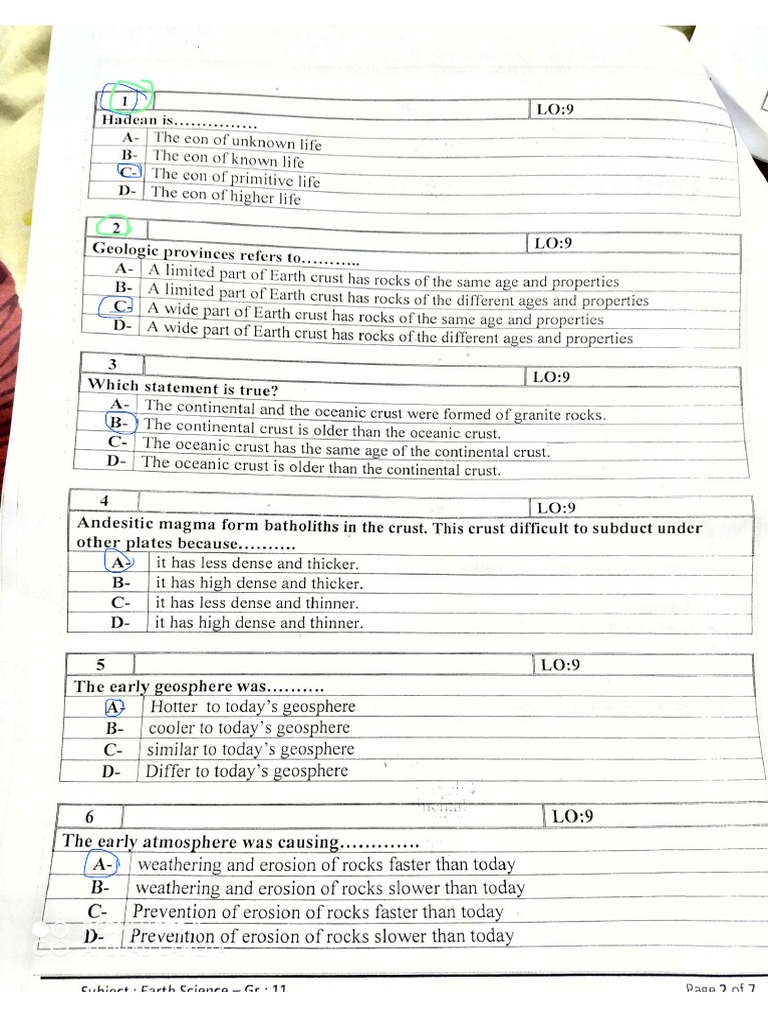 1 LO:9
Hadean is...............
A- The eon of unknown life
B- The eon of known life
C- The eon of primitive life
D- The eon of higher life
2 LO:9
Geologic provinces refers to...........
A- A limited part of Earth crust has rocks of the same age and properties
B- A limited part of Earth crust has rocks of the different ages and properties
C- A wide part of Earth crust has rocks of the same age and properties
D- A wide part of Earth crust has rocks of the different ages and properties
3 LO:9
Which statement is true?
A- The continental and the oceanic crust were formed of granite rocks.
B- The continental crust is older than the oceanic crust.
C- The oceanic crust has the same age of the continental crust.
D- The oceanic crust is older than the continental crust.
4 LO:9
Andesitic magma form batholiths in the crust. This crust difficult to subduct under
other plates because..........
A- it has less dense and thicker.
B- it has high dense and thicker.
C- it has less dense and thinner.
D- it has high dense and thinner.
5 LO:9
The early geosphere was..........
A- Hotter to today's geosphere
B- cooler to today's geosphere
C- similar to today's geosphere
D- Differ to today's geosphere
6 LO:9
The early atmosphere was causing.............
A- weathering and erosion of rocks faster than today
B- weathering and erosion of rocks slower than today
C- Prevention of erosion of rocks faster than today
D- Prevention of erosion of rocks slower than today
Subject : Earth Science – Gr : 11 Page 2 of 7